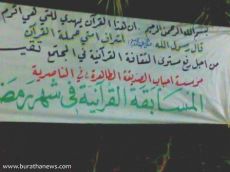 بسم الله الرحمن الرحيم. ان هذا القرآن يهدي للتي هي اقوم
قال رسول الله اشراف امتي حملة القرآن
من اجل رفع مستوى الثقافة القرآنية في المجتمع تقيم
مؤسسة احباب الصديقة الطاهرة في الناصرية
المسابقة القرآنية في شهر رمضا
© www.burathanews.com